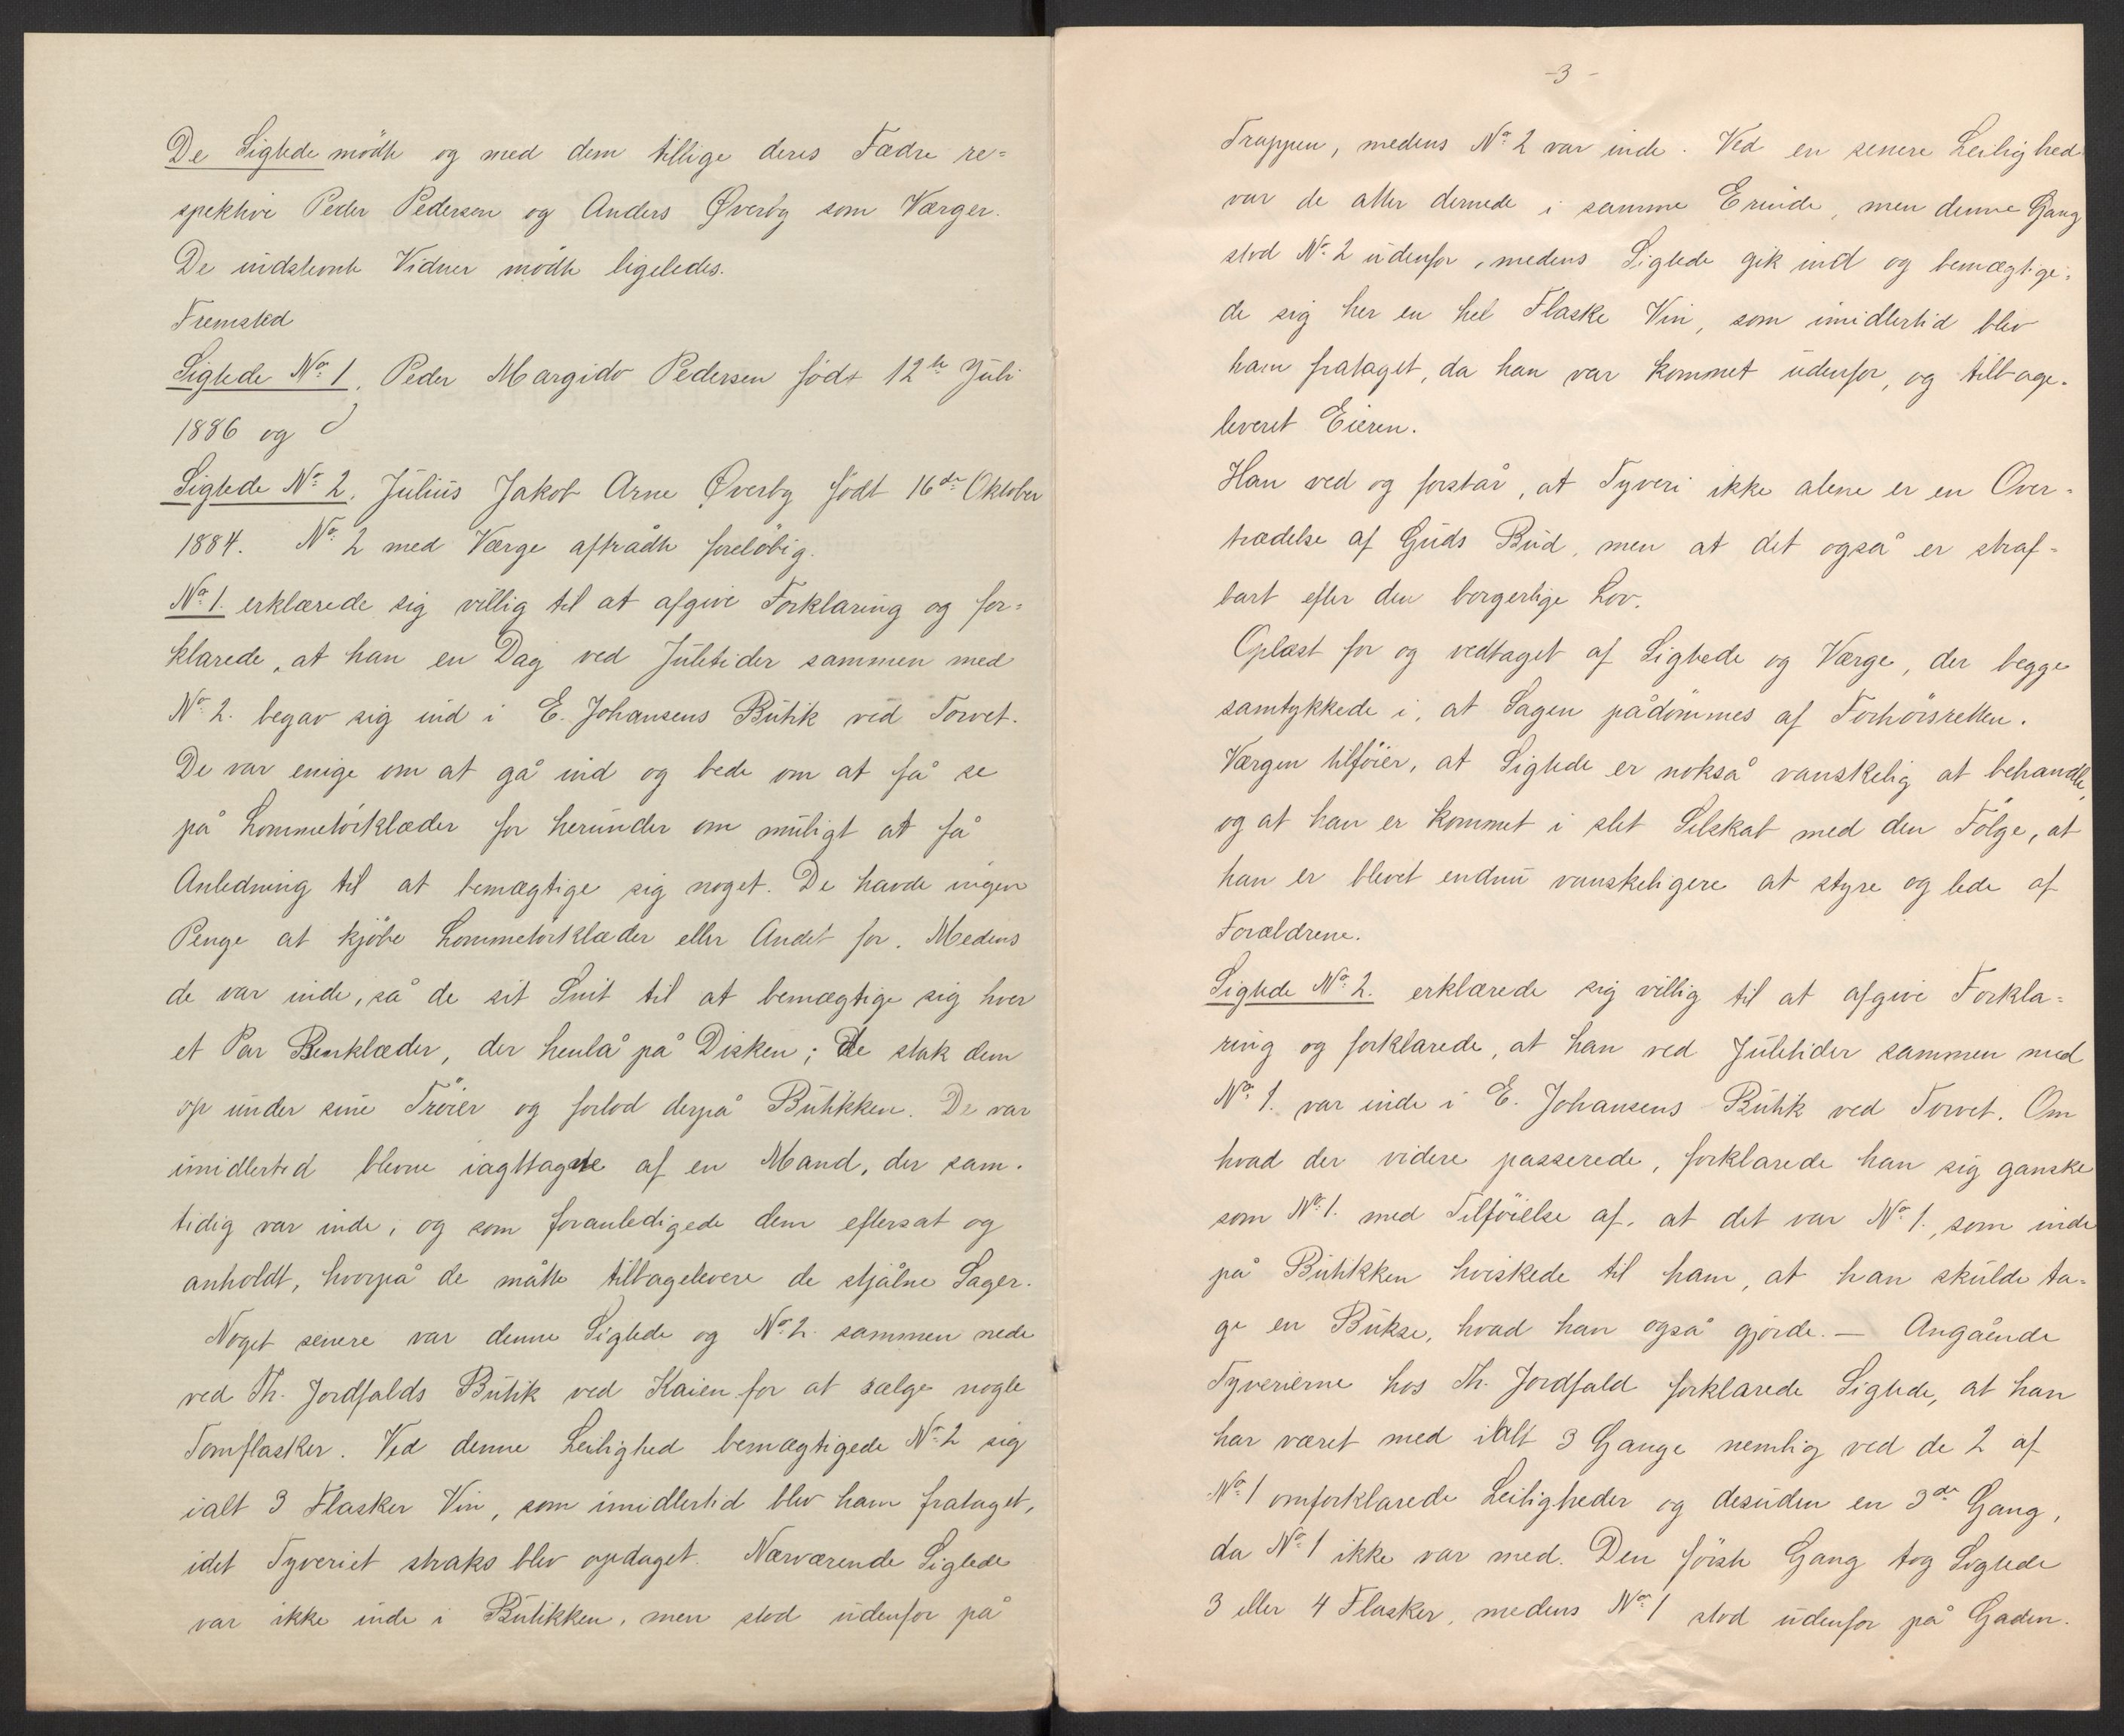 De Sigtede mödte og med dem tillige deres Fædre re=
spektive Peder Pedersen og Anders Øverby som Værger.
De indstevnte Vidner mödte ligeledes.
Fremsted
Sigtede No. 1. Peder Margido Pedersen födt 12te Juli
1886 og
Sigtede No. 2. Julius Jakob Arne Øverby födt 16de Oktober
1884. No. 2 med Værge aftrådte foreløbig.
No. 1. erklærede sig villig til at afgive Forklaring og for=
klarede, at han en Dag ved Juletider sammen med
No. 2. begav sig ind i E. Johansens Butik ved Torvet.
De var enige om at gå ind og bede om at få se
på Lommetörklæder for herunder om muligt at få
Anledning til at bemægtige sig noget. De havde ingen
Penge at kjöbe Lommetörklæder eller Andet for. Medens
de var inde, så de sit Snit til at bemægtige sig hver
et Par Benklæder, der henlå på Disken; de stak dem
op under sine Tröier og forlod derpå Butikken. De var
imidlertid blevne iagttagne af en Mand, der sam=
tidig var inde, og som foranledigede dem eftersat og
anholdt, hvorpå de måtte tilbagelevere de stjålne Sager.
Noget senere var denne Sigtede og No. 2. sammen nede
ved Th. Jordfalds Butik ved Kaien for at sælge nogle
Tomflasker. Ved denne Leilighed bemægtigede No. 2 sig
ialt 3 Flasker Vin, som imidlertid blev ham frataget,
idet Tyveriet straks blev opdaget. Nærværende Sigtede
var ikke inde i Butikken, men stod udenfor på
- 3 -
Trappen, medens No. 2 var inde. Ved en senere Leilighed
var de atter dernede i samme Erinde, men denne Gang
stod No. 2 udenfor, medens Sigtede gik ind og bemægtige=
de sig her en hel Flaske Vin, som imidlertid blev
ham frataget, da han var kommet udenfor, og tilbage=
leveret Eieren.
Han ved og forstår, at Tyveri ikke alene er en Over=
trædelse af Guds Bud, men at det også er straf=
bart efter den borgerlige Lov.
Oplæst for og vedtaget af Sigtede og Værge, der begge
samtykkede i, at Sagen pådömmes af Forhörsretten.
Værgen tilföier, at Sigtede er nokså vanskelig at behandle,
og at han er kommet i slet Selskab med den Fölge, at
han er blevet endnu vanskeligere at styre og lede af
Forældrene.
Sigtede No. 2. erklærede sig villig til at afgive Forkla=
ring og forklarede, at han ved Juletider sammen med
No. 1. var inde i E. Johansens Butik ved Torvet. Om
hvad der videre passerede, forklarede han sig ganske
som No. 1. med Tilföielse af, at det var No. 1., som inde
på Butikken hviskede til ham, at han skulde ta=
ge en Bukse, hvad han også gjorde. — Angående
Tyverierne hos Th. Jordfald forklarede Sigtede, at han
har været med ialt 3 Gange nemlig ved de 2 af
No. 1 omforklarede Leiligheder og desuden en 3de Gang,
da No. 1 ikke var med. Den förste Gang tog Sigtede
3 eller 4 Flasker, medens No. 1 stod udenfor på Gaden.